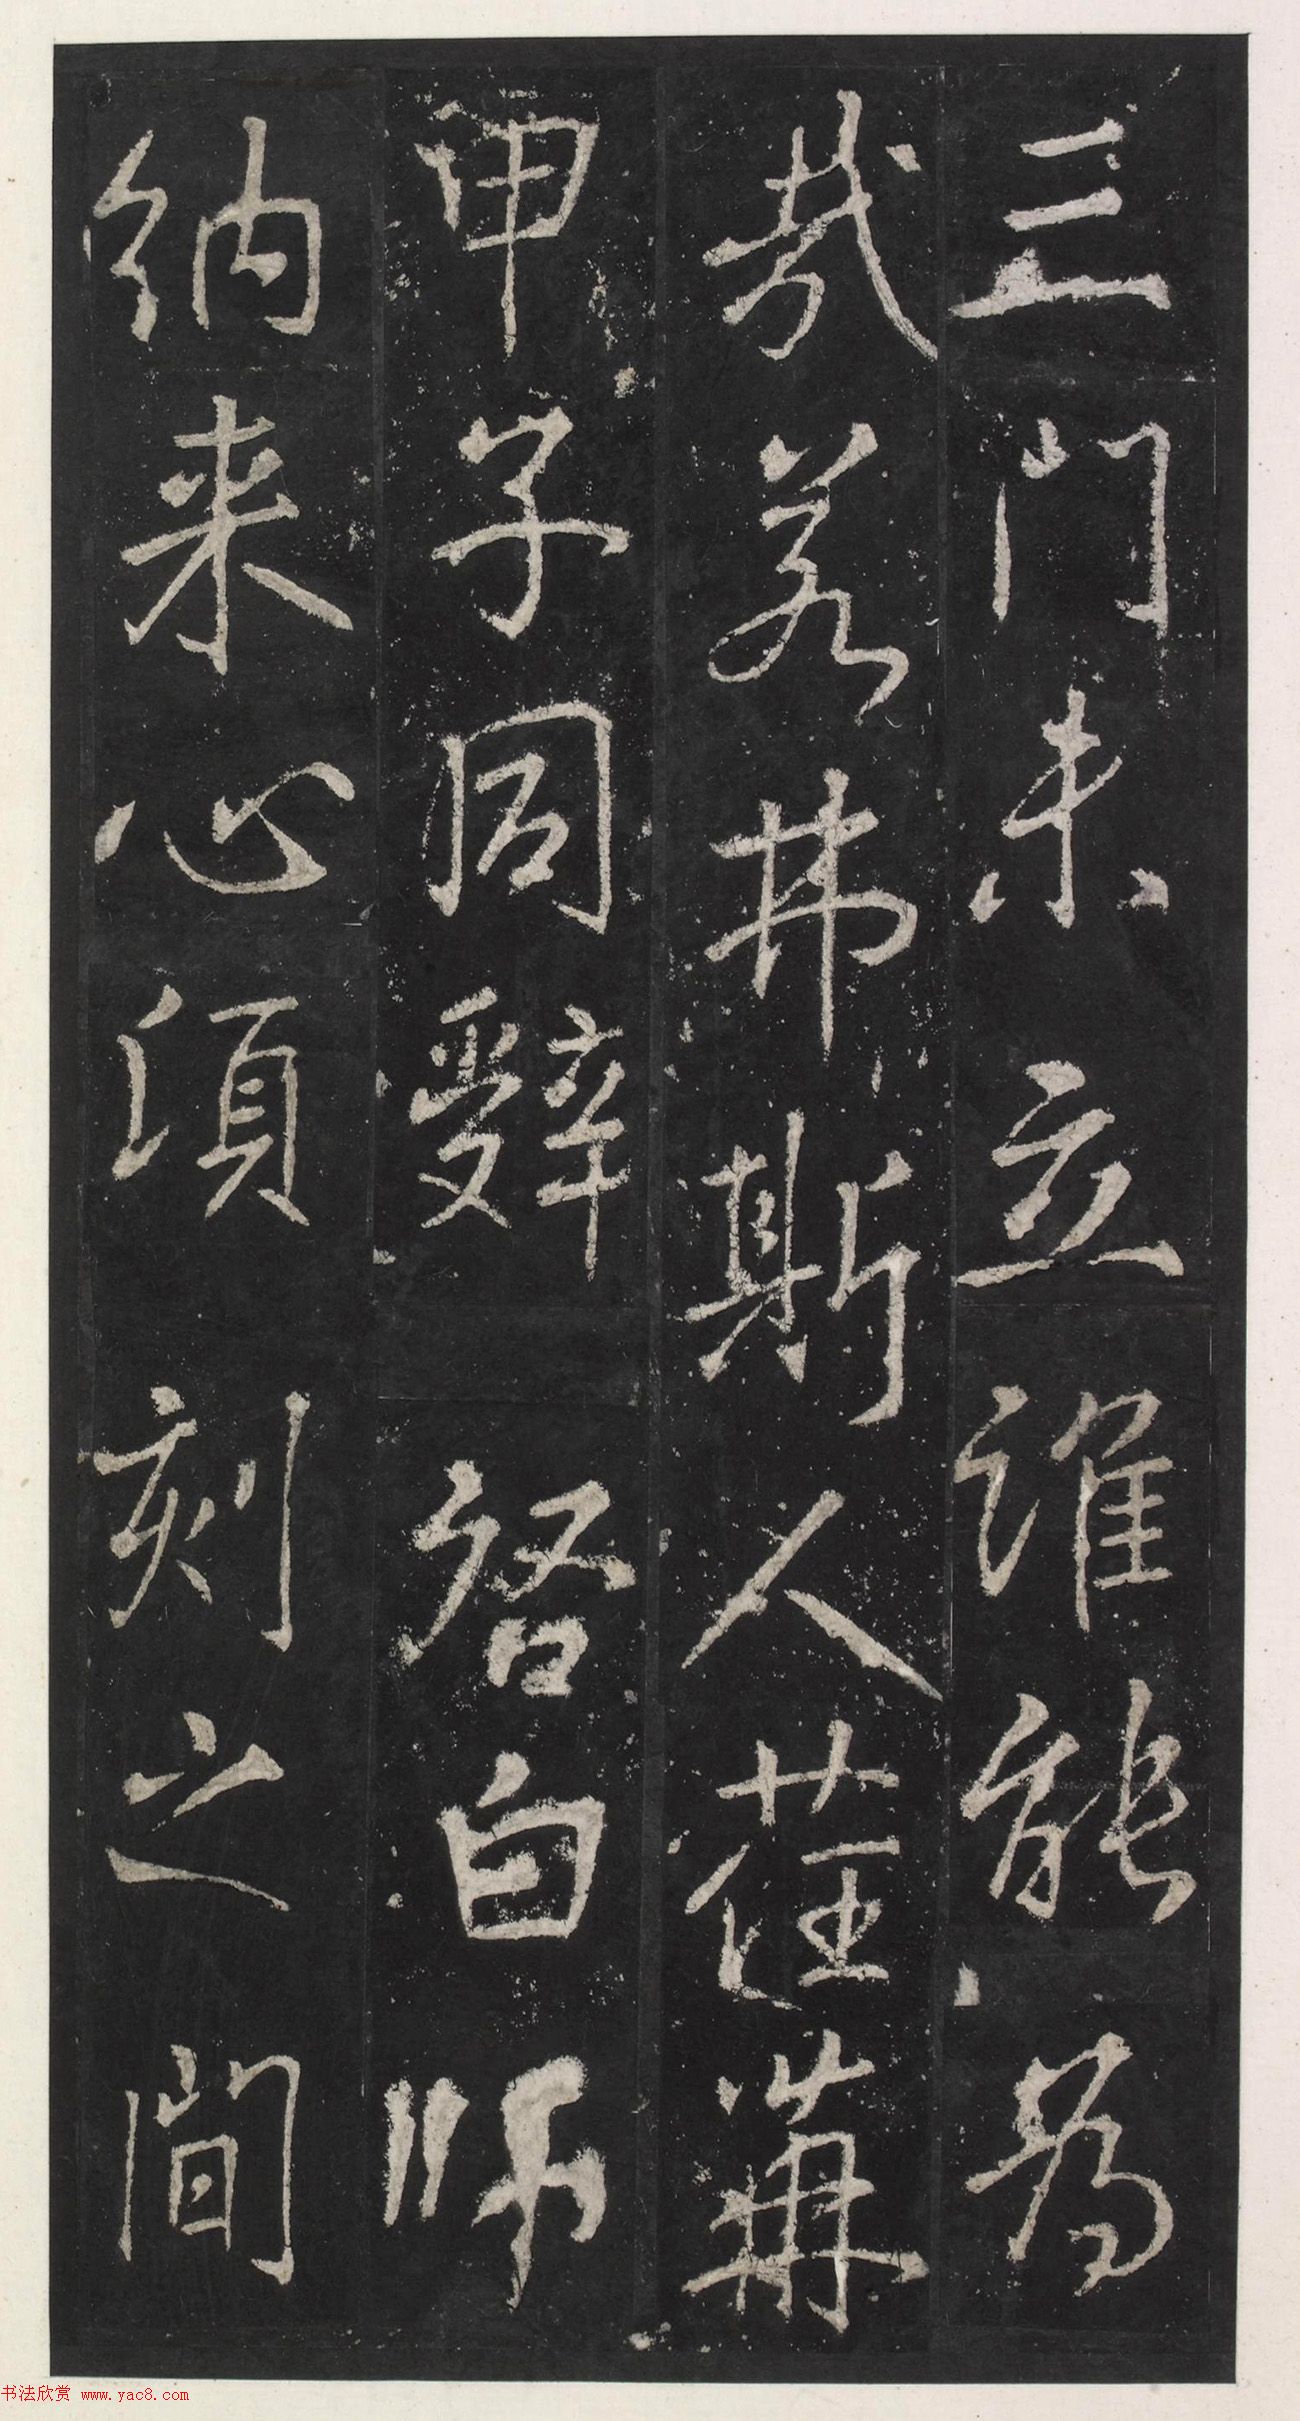 三門未立誰能為
哉若弗斯人荏苒
甲子同辭啓白師
納来心須刻之間
书法欣赏 www.yac8.com